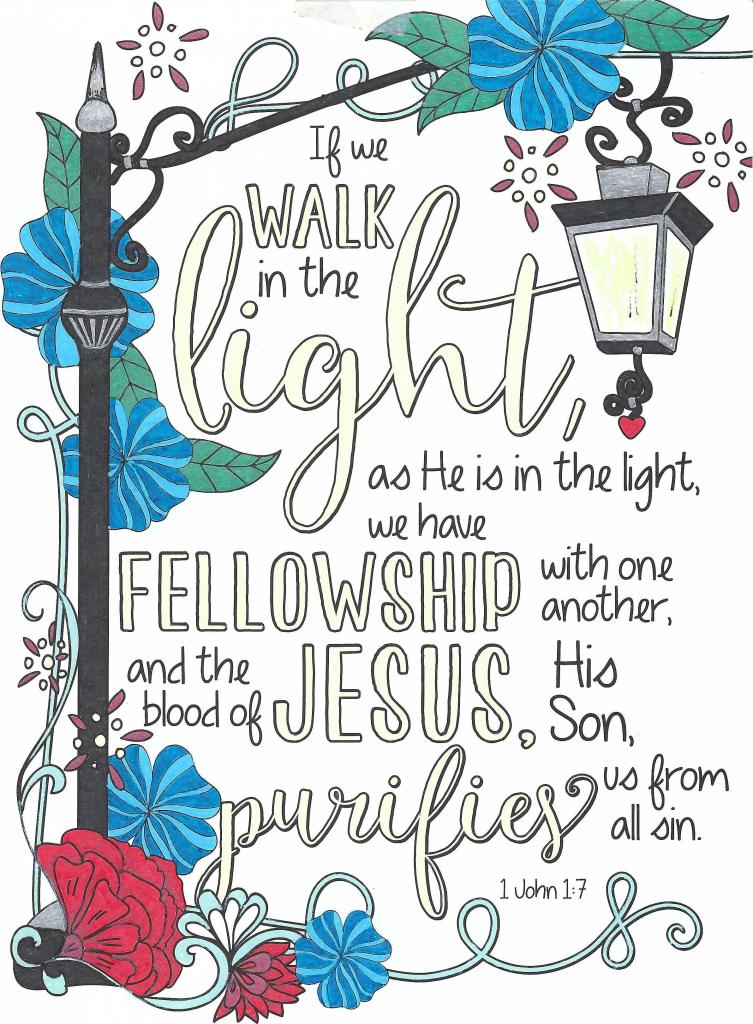 If we
WALK
in the
light,
as He is in the light,
we have
FELLOWSHIP with one another,
and the blood of JESUS, His Son,
purifies us from all sin.
1 John 1:7